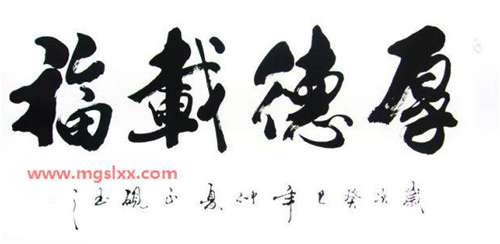 厚德載福
www.mgslxx.com
歲次癸巳年仲夏